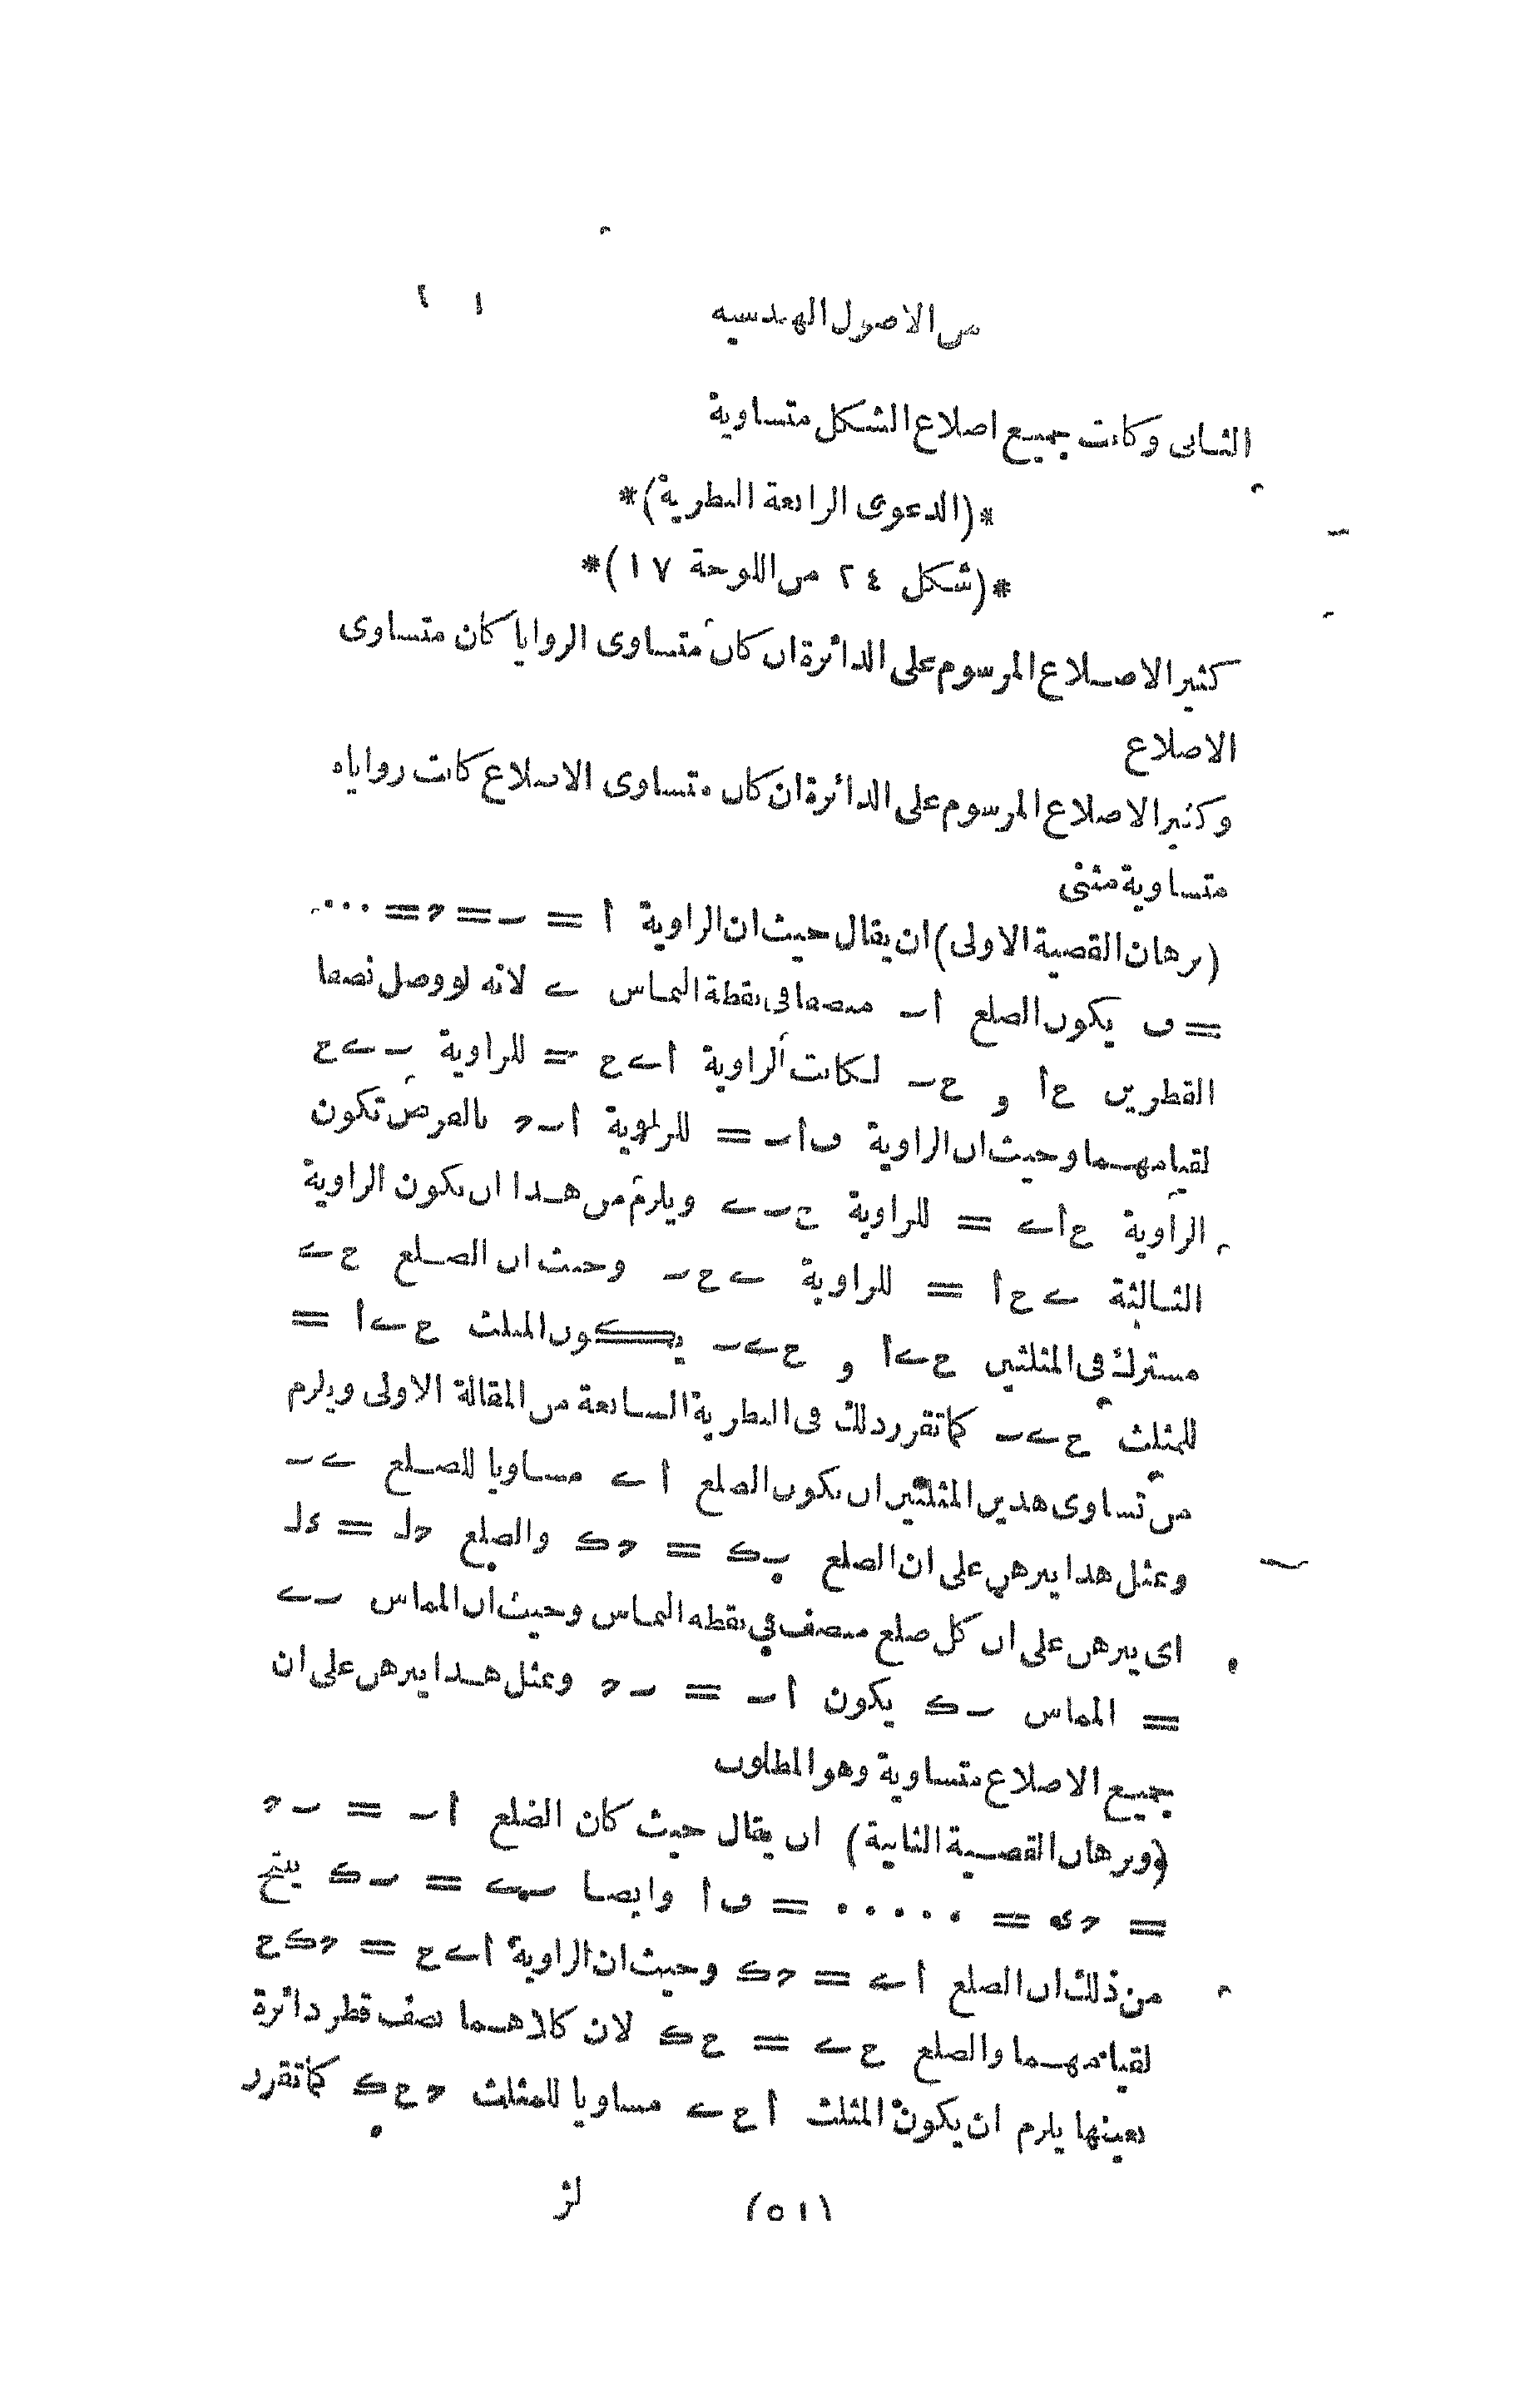 من الاصول الهندسيه ٢ ١
الثانى وكانت جميع اضلاع الشكل متساوية
*(الدعوى الرابعة النظرية)*
*(شكل ٢٤ من اللوحة ١٧)*
كثير الاضلاع المرسوم على الدائرة ان كان متساوى الزوايا كان متساوى
الاضلاع
وكثير الاضلاع المرسوم على الدائرة ان كان متساوى الاضلاع كانت زواياه
متساوية مثنى
(برهان القضية الاولى) ان يقال حيث ان الزاوية أ = ب = د = ...
= ف يكون الضلع أب منصفا فى نقطة التماس ے لانه لو وصل نصفا
القطرين ح أ و ح ب لكانت الزاوية أ ے ح = للزاوية ب ے ح
لقيامهما وحيث ان الزاوية ف أ ب = للزاوية أ ب د بالفرض تكون
الزاوية ح أ ے = للزاوية ح ب ے ويلزم من هذا ان تكون الزاوية
الثالثة ے ح أ = للزاوية ے ح ب وحيث ان الضلع ح ے
مشترك فى المثلثين ح ے أ و ح ے ب يكون المثلث ح ے أ =
للمثلث ح ے ب كما تقرر ذلك فى النظرية السابعة من المقالة الاولى ويلزم
من تساوى هذين المثلثين ان يكون الضلع أ ے مساويا للضلع ے ب
وبمثل هذا يبرهن على ان الضلع ب ك = د ك والضلع د ل = ء ل
اى يبرهن على ان كل ضلع منصف فى نقطه التماس وحيث ان المماس ب ے
= المماس ب ك يكون أ ب = ب د وبمثل هذا يبرهن على ان
جميع الاضلاع متساوية وهو المطلوب
(وبرهان القضية الثانية) ان يقال حيث كان الضلع أ ب = ب د
= د ء = ..... = ف أ وايضا ب ے = ب ك ينتج
من ذلك ان الضلع أ ے = د ك وحيث ان الزاوية أ ے ح = د ك ح
لقيامهما والضلع ح ے = ح ك لان كلاهما نصف قطر دائرة
بعينها يلزم ان يكون المثلث أ ح ے مساويا للمثلث د ح ك كما تقرر
(٥١) لژ